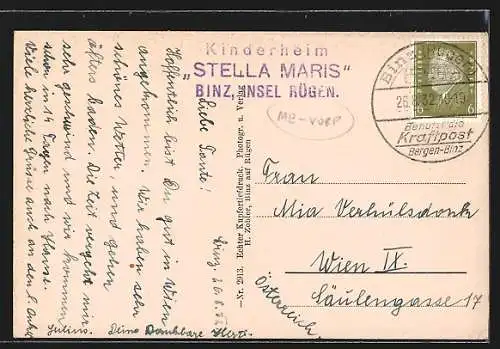 Kinderheim
"STELLA MARIS"
BINZ, INSEL RÜGEN.
MB-VORP
Binz (Rügen)
26. 32. 18-19
Benutzt die
Kraftpost
Bergen-Binz
6
Binz, 26.8.32
Liebe Tante!
Hoffentlich bist Du gut in Wien
angekommen. Wir haben sehr
schönes Wetter, und gehen
öfters baden. Die Zeit vergeht mir
sehr geschwind und wir kommen
schon in 14 Tagen nach Hause.
Viele herzliche Grüsse auch an den l. Onkel
Julius. Deine Dankbare Herta.
—Nr. 2913. Echter Kupfertiefdruck. Photogr. u. Verlag
H. Zobler, Binz auf Rügen
Frau
Mia Verhülsdonk
Wien IX.
Säulengasse 17
Österreich.